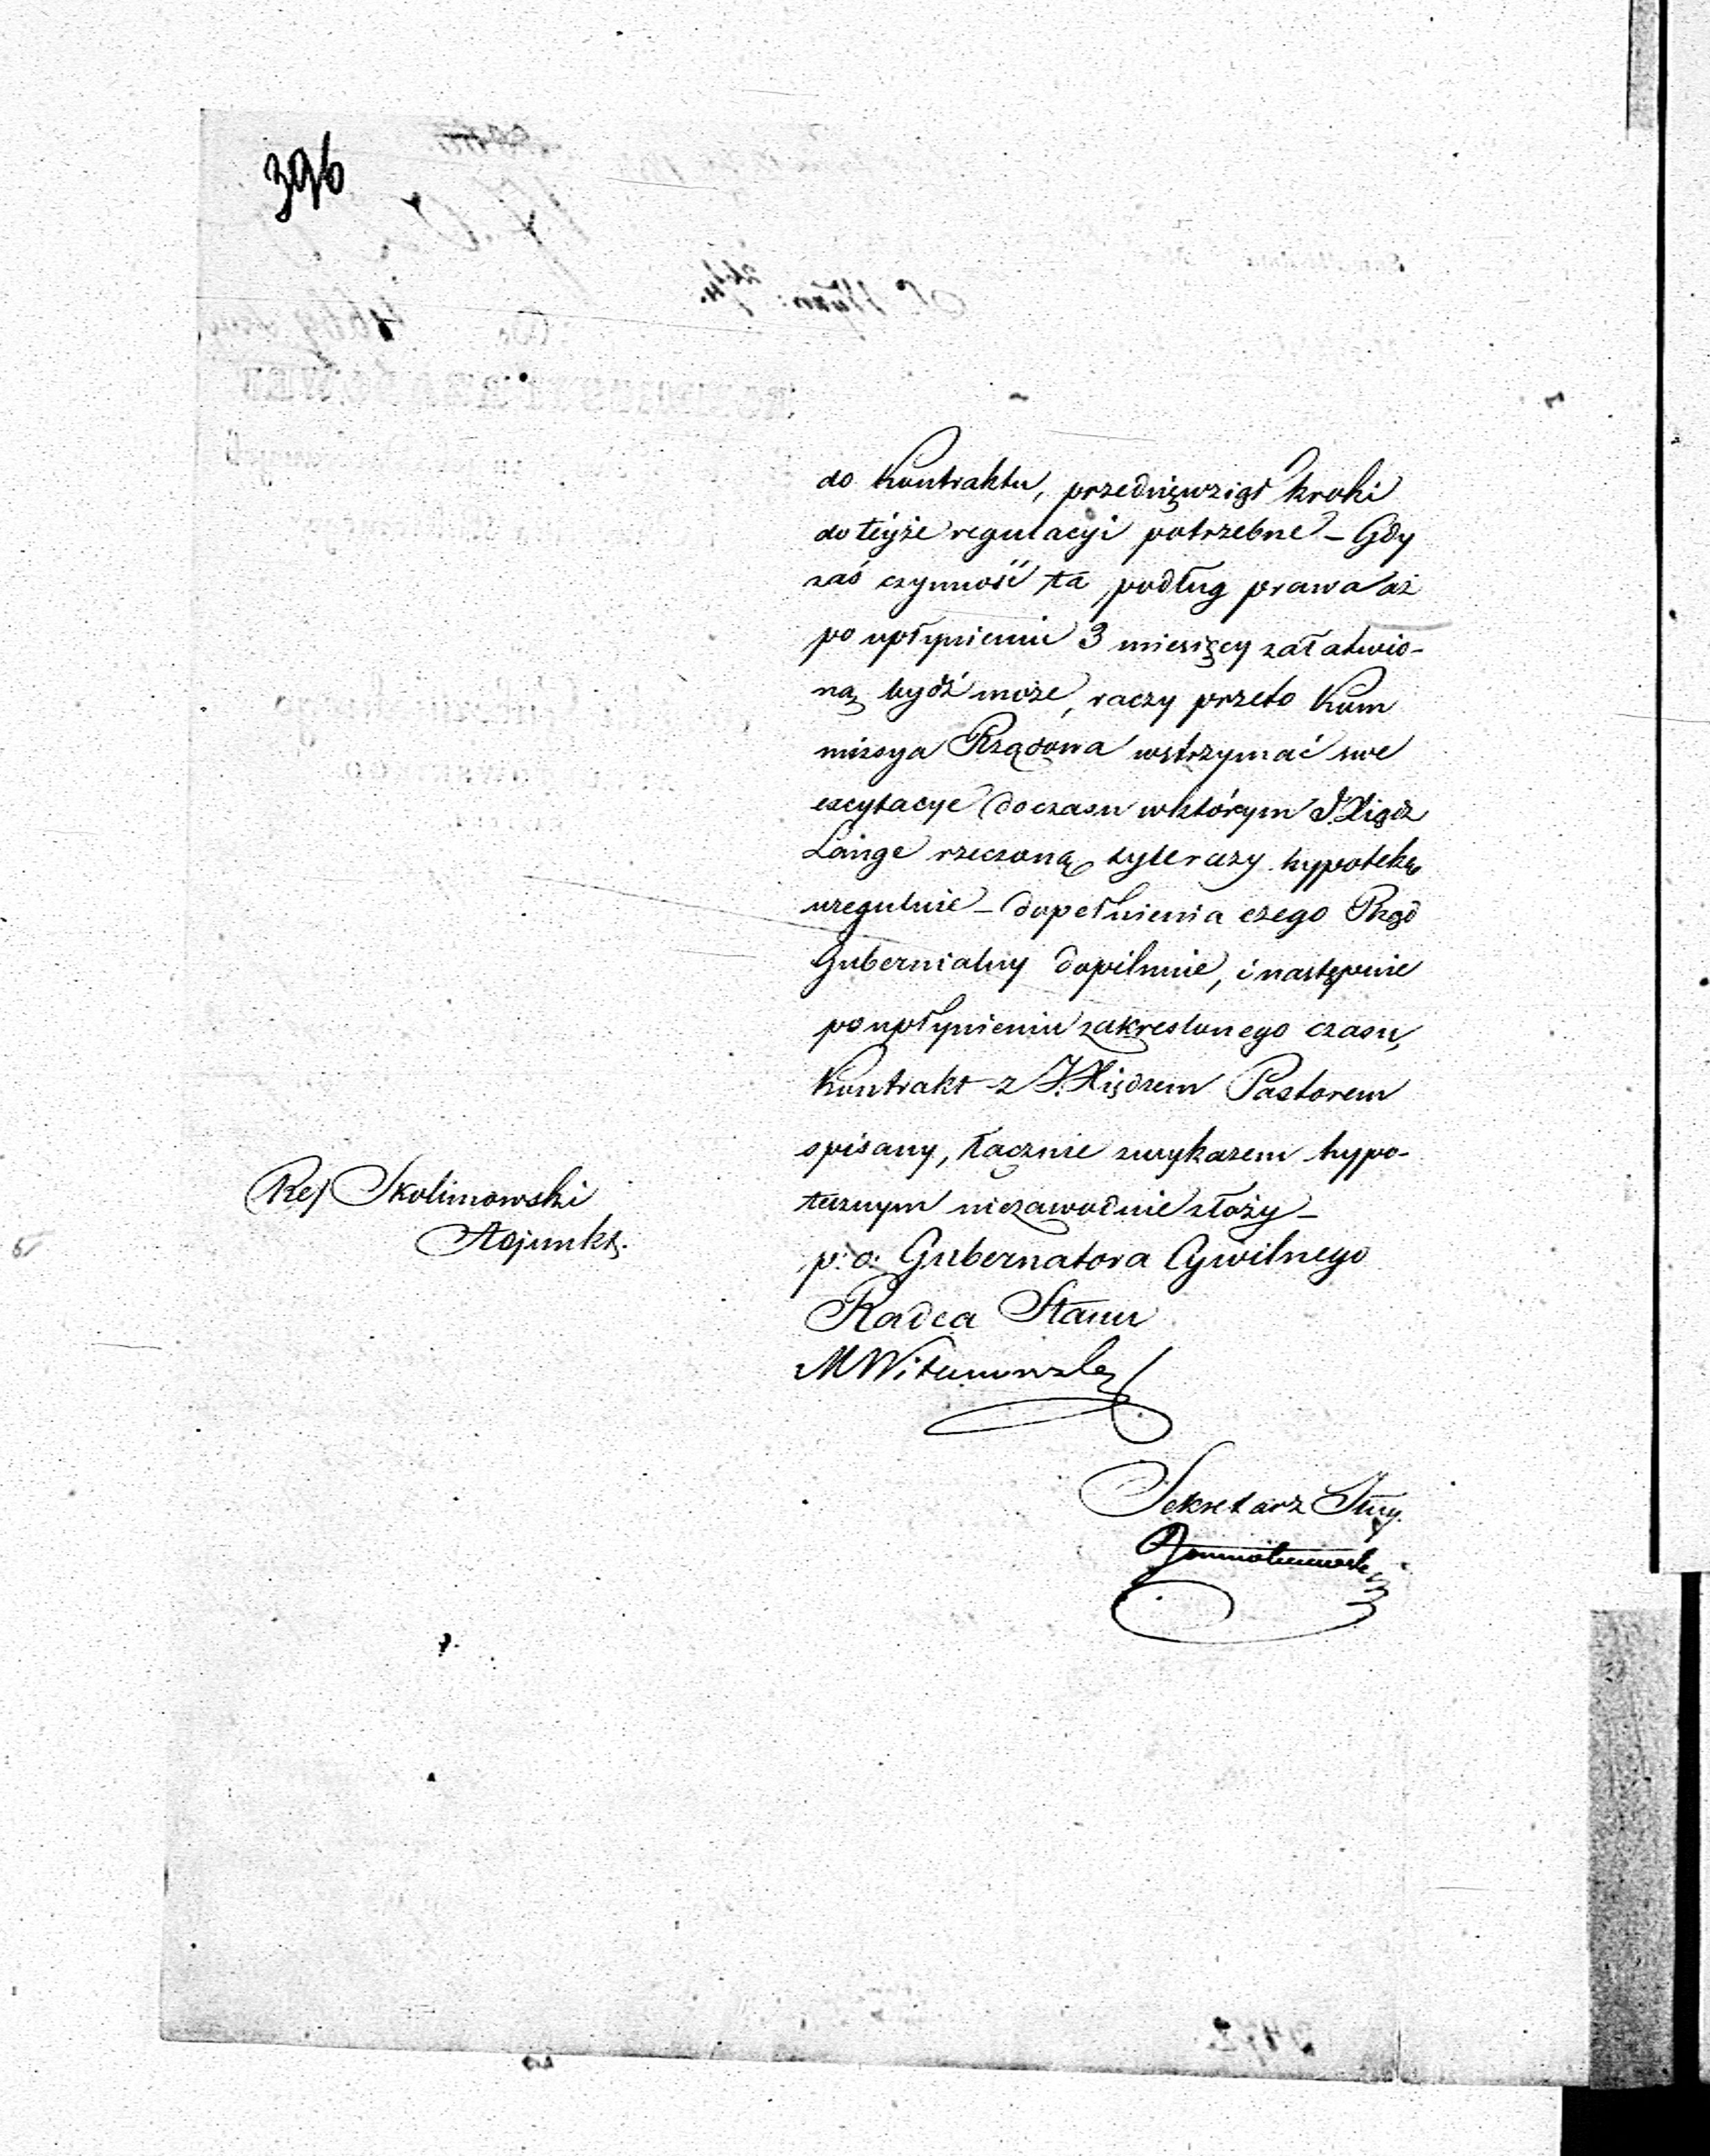 396
do Kontraktu, przedsięwziął kroki
do teyże regulacyi potrzebne – Gdy
zaś czynność ta podług prawa aż
po upłynieniu 3 miesięcy załatwio-
ną bydź może, raczy przeto Kom
missya Rządowa wstrzymać swe
excytacye do czasu w którym J. Xiądz
Lange rzeczoną tyle razy hypotekę
ureguluie – dopełnienia czego Rząd
Gubernialny dopilnuie, i następnie
po upłynieniu zakreslonego czasu,
Kontrakt z J. Xiędzem Pastorem
spisany, łącznie z wykazem hypo-
tecznym niezawodnie złoży –
Ref Skolimowski
Adjunkt.
p: o: Gubernatora Cywilnego
Radca Stanu
Sekretarz